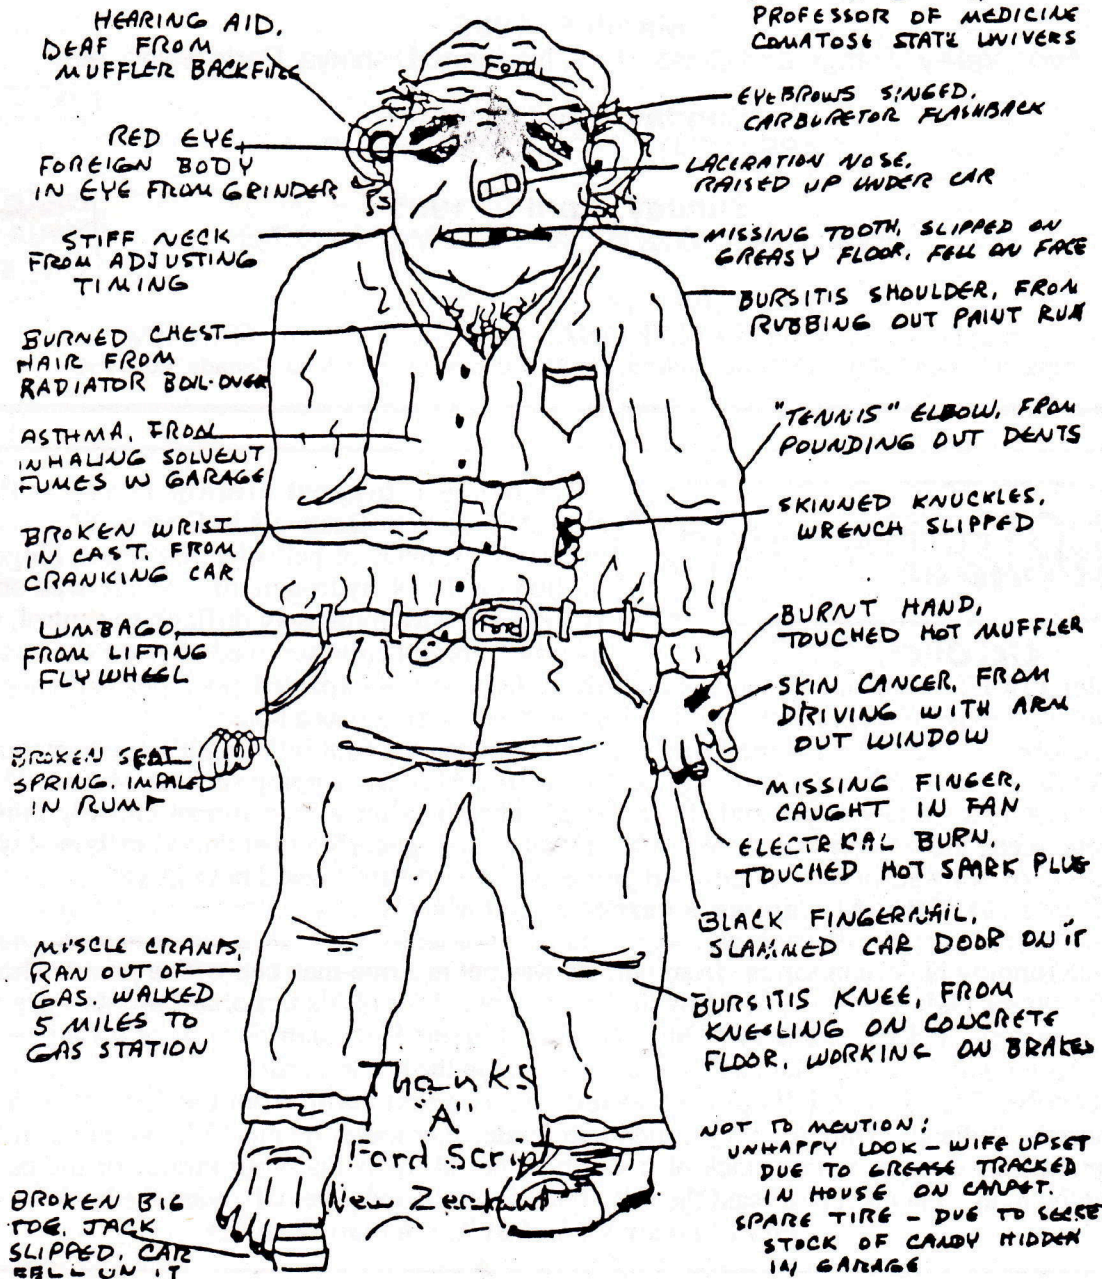 HEARING AID,
DEAF FROM
MUFFLER BACKFIRE
RED EYE,
FOREIGN BODY
IN EYE FROM GRINDER
STIFF NECK
FROM ADJUSTING
TIMING
BURNED CHEST
HAIR FROM
RADIATOR BOIL-OVER
ASTHMA, FROM
INHALING SOLVENT
FUMES IN GARAGE
BROKEN WRIST
IN CAST, FROM
CRANKING CAR
LUMBAGO,
FROM LIFTING
FLYWHEEL
BROKEN SEAT
SPRING, IMPALED
IN RUMP
MUSCLE CRAMPS,
RAN OUT OF
GAS, WALKED
5 MILES TO
GAS STATION
BROKEN BIG
TOE, JACK
SLIPPED, CAR
FELL ON IT
Ford
Ford
Thanks
"A"
Ford Script
New Zealand
PROFESSOR OF MEDICINE
COMATOSE STATE UNIVERS
EYEBROWS SINGED,
CARBURETOR FLASHBACK
LACERATION NOSE,
RAISED UP UNDER CAR
MISSING TOOTH, SLIPPED ON
GREASY FLOOR, FELL ON FACE
BURSITIS SHOULDER, FROM
RUBBING OUT PAINT RUN
"TENNIS" ELBOW, FROM
POUNDING OUT DENTS
SKINNED KNUCKLES,
WRENCH SLIPPED
BURNT HAND,
TOUCHED HOT MUFFLER
SKIN CANCER, FROM
DRIVING WITH ARM
OUT WINDOW
MISSING FINGER,
CAUGHT IN FAN
ELECTRICAL BURN,
TOUCHED HOT SPARK PLUG
BLACK FINGERNAIL,
SLAMMED CAR DOOR ON IT
BURSITIS KNEE, FROM
KNEELING ON CONCRETE
FLOOR, WORKING ON BRAKES
NOT TO MENTION:
UNHAPPY LOOK - WIFE UPSET
DUE TO GREASE TRACKED
IN HOUSE ON CARPET.
SPARE TIRE - DUE TO
STOCK OF CANDY HIDDEN
IN GARAGE